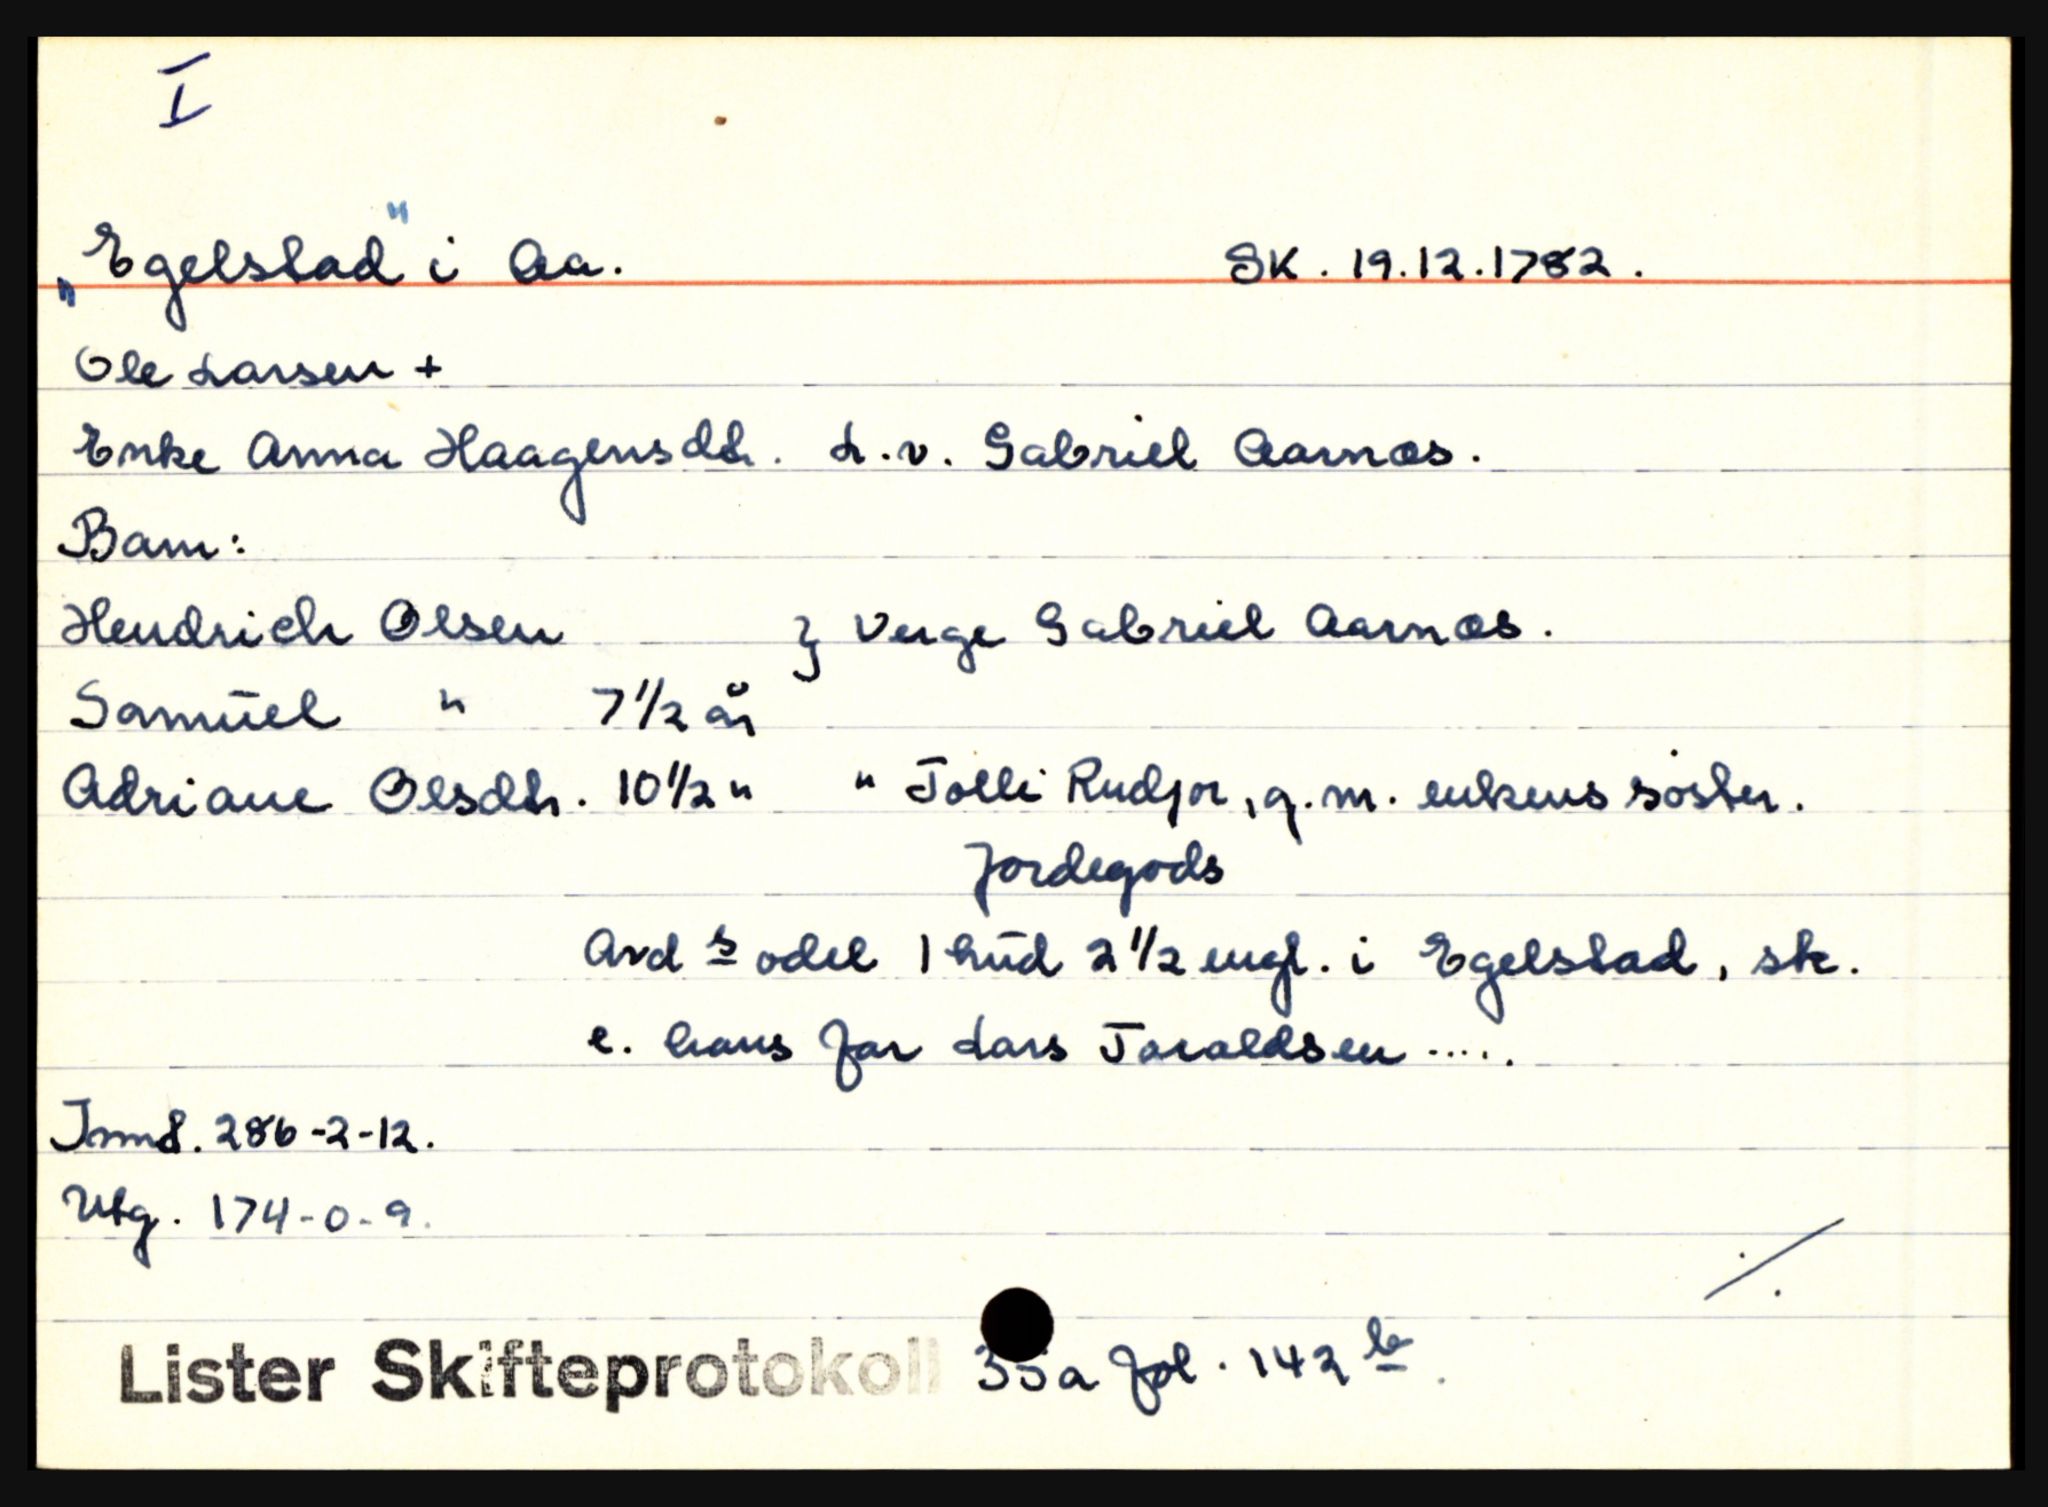 I
"Egelstad" i Aa. SK. 19.12.1782.
Ole Larsen +
Enke Anna Haagensdtr. L.v. Gabriel Aarnæs.
Barn:
Hendrich Olsen } Verge Gabriel Aarnæs.
Samuel " 7 1/2 år
Adriane Olsdtr. 10 1/2 " " Jolli Rudjor, g.m. enkens söster.
Jordegods
Avd s odel 1 hud 2 1/2 engl. i Egelstad, sk.
e. hans far Lars Taraldsen .....
Innd. 286-2-12.
Utg. 174-0-9.
./.
Lister Skifteprotokoll 35a fol. 142 b.